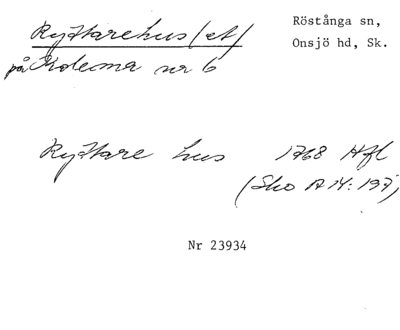 Ryttarehus(et)
Röstånga sn,
Onsjö hd, Sk.
på nr 6
Ryttare hus 1768 Hfl
(Sko A 14: 197)
Nr 23934